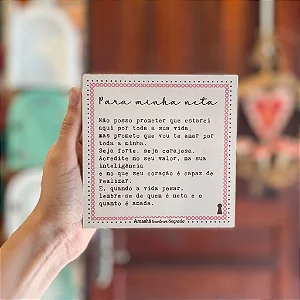 Para minha neta
Não posso prometer que estarei
aqui por toda a sua vida,
mas prometo que vou te amar por
toda a minha.
Seja forte, seja corajosa.
Acredite no seu valor, na sua
inteligência
e no que seu coração é capaz de
realizar.
E, quando a vida pesar,
lembre-se de quem é neta e o
quanto é amada.